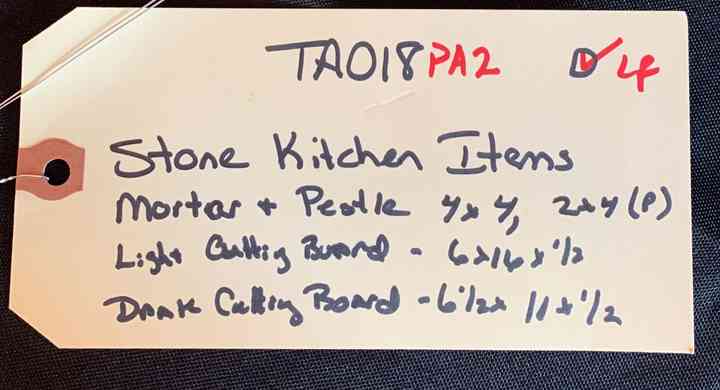 TA018PA2 D✓ 4
Stone Kitchen Items
Mortar + Pestle 4x4, 2x4 (P)
Light Cutting Board - 6x16x1/2
Dark Cutting Board - 6 1/2x 11x1/2